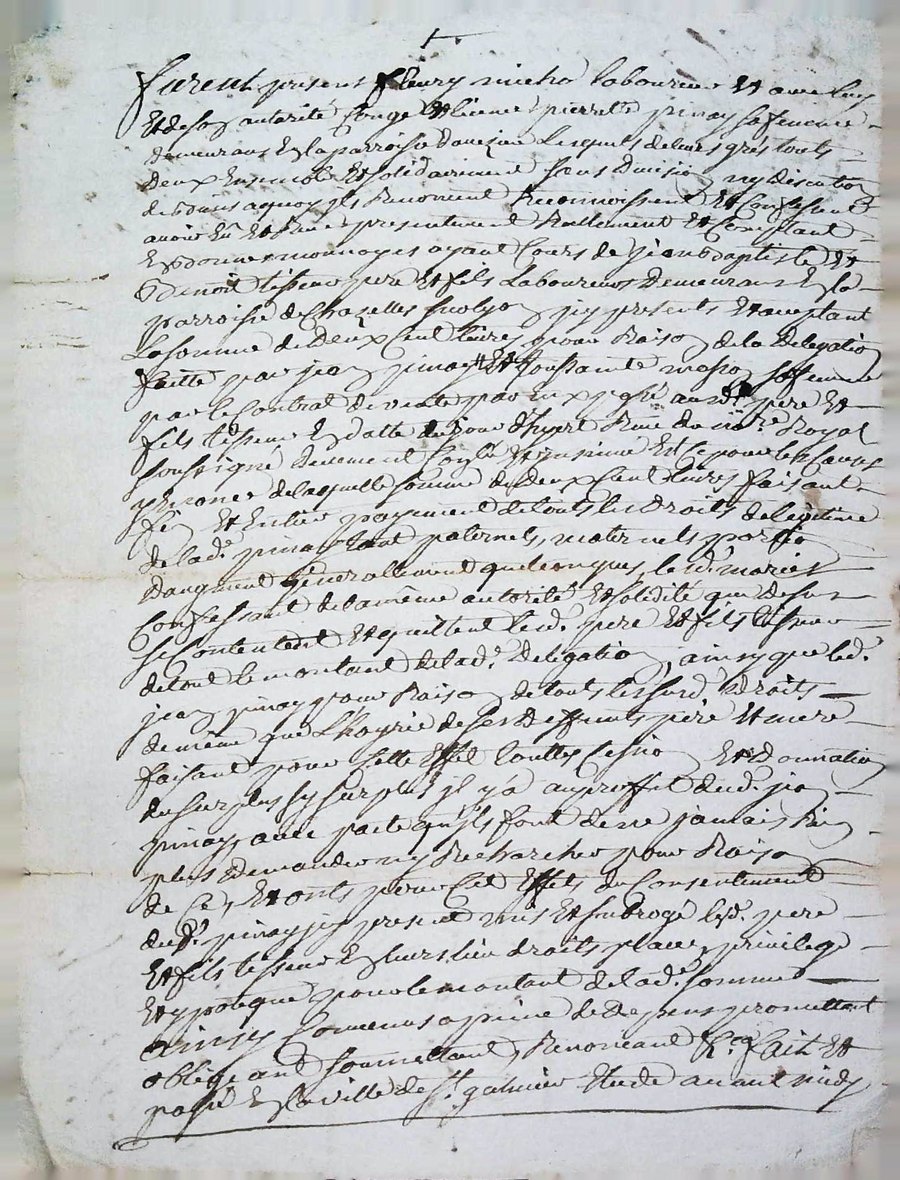 furent present fleury micho laboureur Et avec luy
Et de son autorité Congé Et licence pierrette pinay sa femme
demeurans En la parroisse Daveizieu Lesquels de leurs grés touts
deux Ensemble Et solidairement sans Division ny discution
de biens a quoy ils Renoncent Reconnoissent Et Confessent
avoir Eû Et Receu presentement Reellement Et Comptant
En bonnes monnoyes ayant Cours de Jean baptiste Et
Benoit tisseur pere Et fils Laboureurs Demeurans En la
parroisse de Chazelles sur lyon icy presents Et acceptant
La somme de Deux Cent livres pour Raison de la Delegation
faitte par jean pinay Et toussainte masson sa femme
par le Contrat de vente par Eux passé aus dts pere Et
fils tisseur En datte du jour d'hyert Receu du nre Royal
soussigné Duement Et Ce pour les Causes
y Enoncer de laquelle somme de deux Cent livres faisant
fin Et Entier payement de touts les Droits de legitime
de lade pinay tant paternels, maternels portion
D'augment generallement quelconques, lesds mariés
Confessant de la même autorité Et solidité que Dessus
se Contentent Et quittent lesds pere Et fils tisseur
de tout le montant de lade Delegation, ainsy que led.
jean pinay pour Raison de touts lessusds Droits
de même que L'hoyrie de ses deffunts pere Et mere
faisant pour cette Effet touttes Cession Et donnation
du surplus sy surplus il y'a au proffit dud. jean
pinay, avec pacte qu'ils font de ne jamais Rien
plus Demander ny Rechercher pour Raison
de Ce, Et onts pour Cet Effets du Consentement
dud. pinay icy present mis Et subrogé lesd. pere
Et fils tisseur En leurs lieu droits place, privilege
Et ypoteque pour le montant de lade somme
ainsy Convenus a peine de depens promettant
obligeant soumettant, Renonceant &ca fait Et
passé En la ville de St galmier Etude avant midy